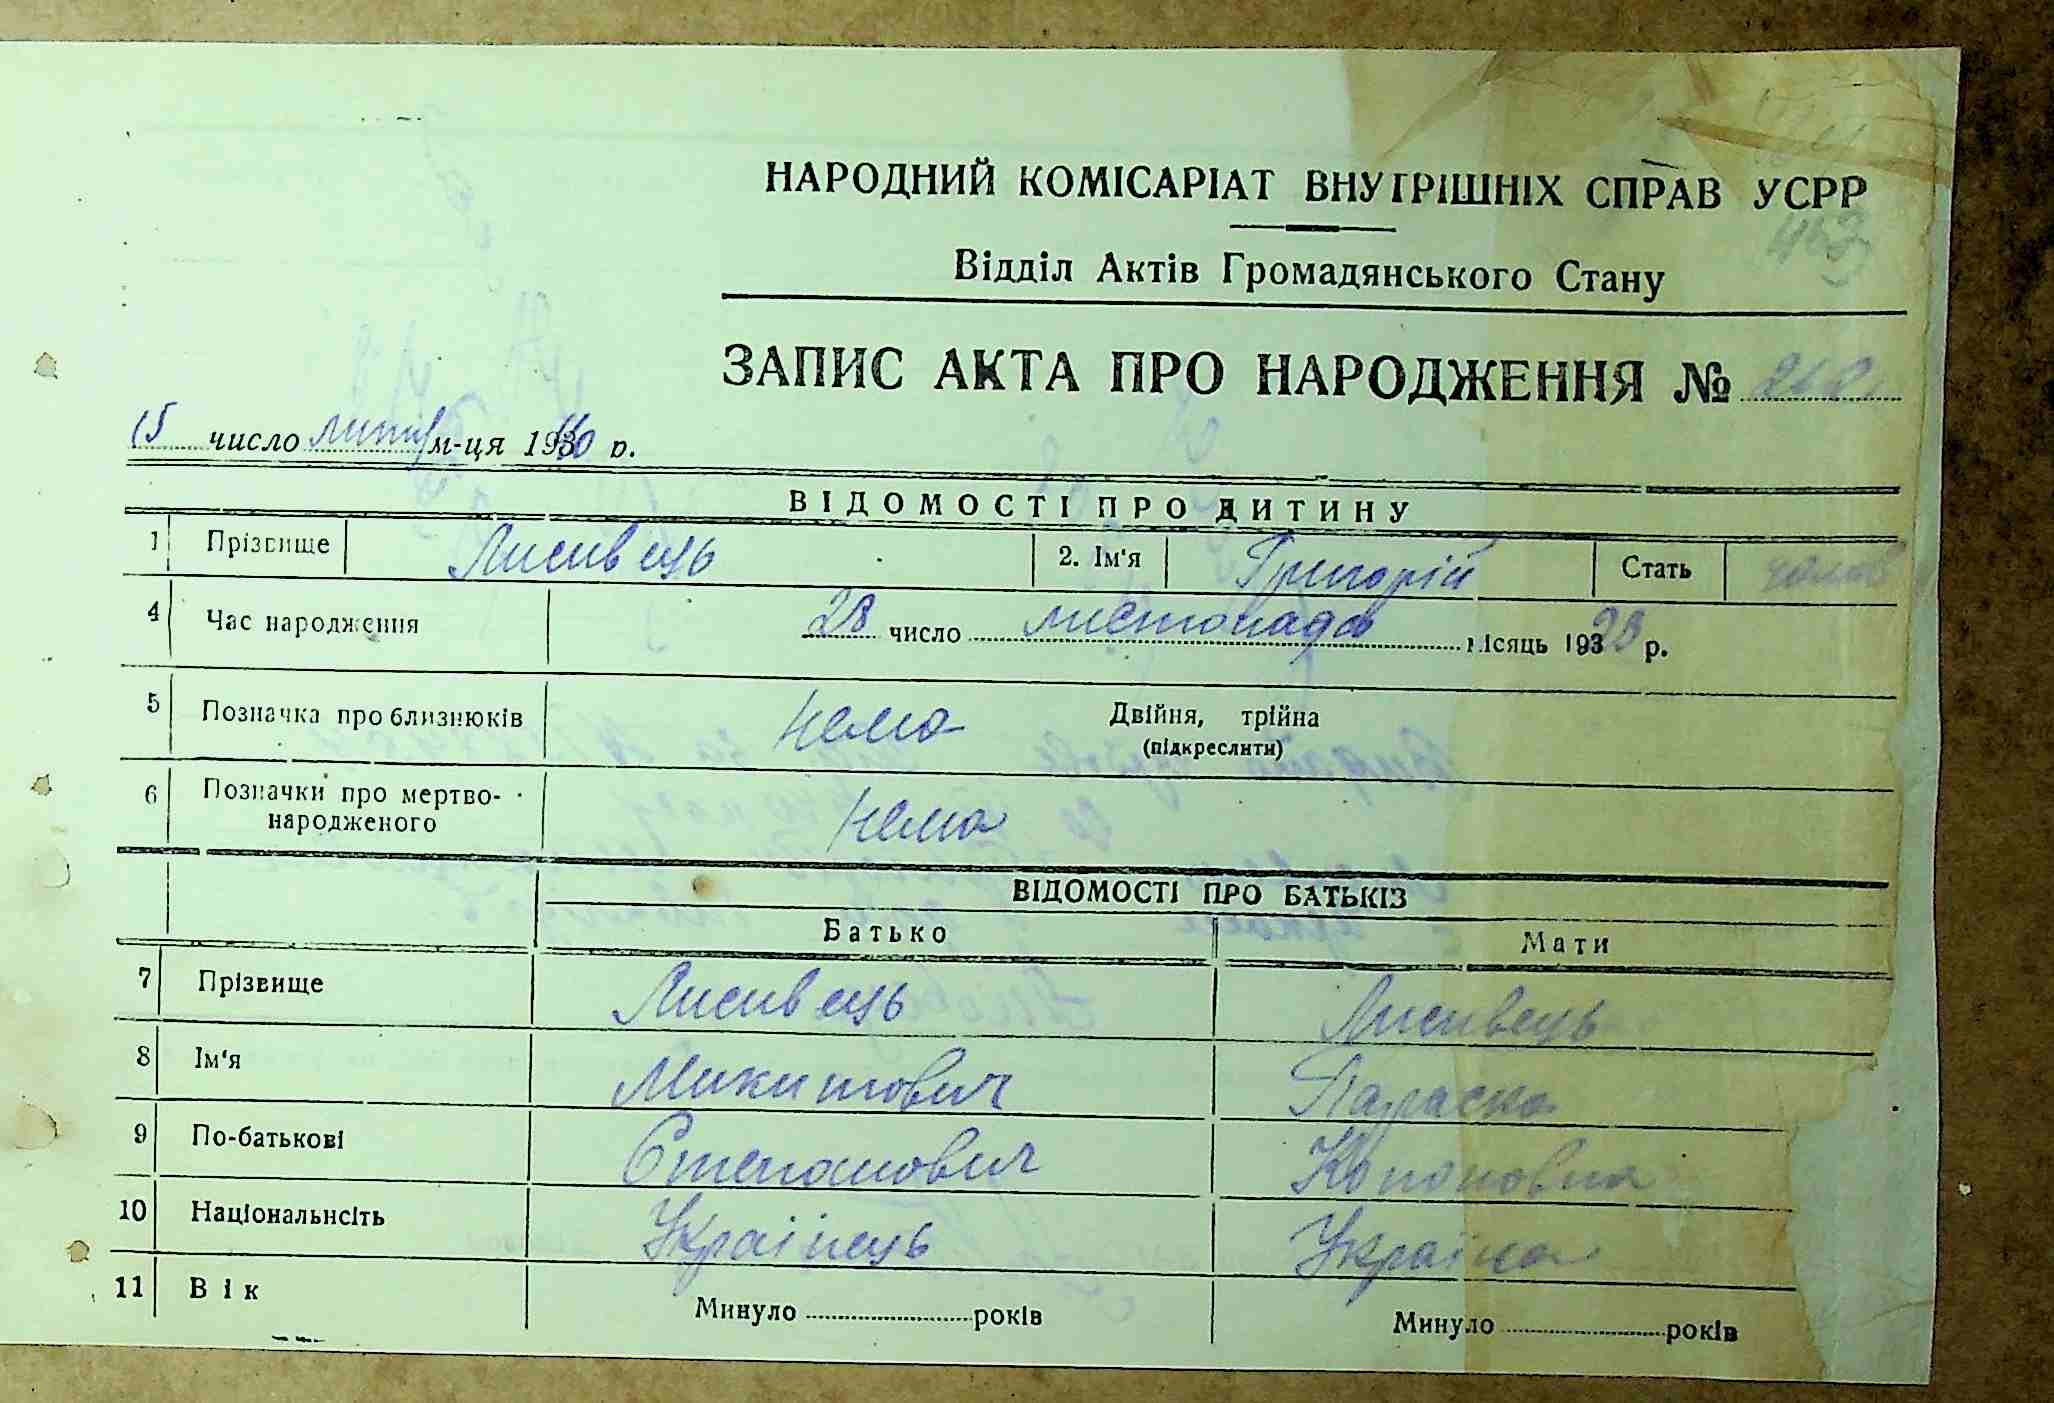 НАРОДНИЙ КОМІСАРІАТ ВНУТРІШНІХ СПРАВ УСРР
Відділ Актів Громадянського Стану
ЗАПИС АКТА ПРО НАРОДЖЕННЯ №
15 число м-ця 1940 р.
ВІДОМОСТІ ПРО ДИТИНУ
1 Прізвище Лисивець 2. Ім'я Григорій Стать
4 Час народження 28 число листопада місяць 193 р.
5 Позначка про близнюків нема Двійня, трійна
(підкреслити)
6 Позначки про мертво-
народженого нема
ВІДОМОСТІ ПРО БАТЬКІЗ
Батько Мати
7 Прізвище Лисивець Лисивець
8 Ім'я Микитович Параска
9 По-батькові Степанович Кононовна
10 Національнсіть Українець Українка
11 Вік Минуло років Минуло років